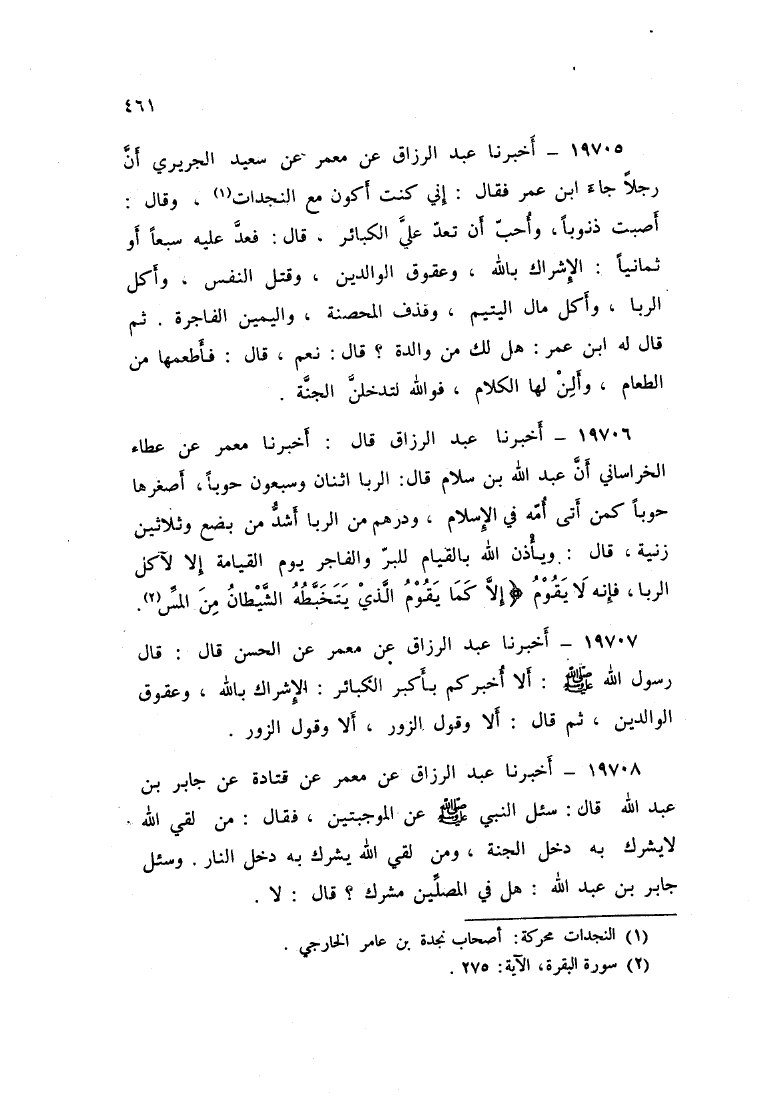 ٤٦١
١٩٧٠٥ – أخبرنا عبد الرزاق عن معمر عن سعيد الجريري أنَّ
رجلاً جاء ابن عمر فقال : إني كنت أكون مع النجدات(١) ، وقال :
أصبت ذنوباً، وأُحبّ أن تعدّ عليَّ الكبائر . قال: فعدَّ عليه سبعاً أو
ثمانياً : الإشراك بالله ، وعقوق الوالدين ، وقتل النفس ، وأكل
الربا ، وأكل مال اليتيم ، وقذف المحصنة ، واليمين الفاجرة . ثم
قال له ابن عمر: هل لك من والدة ؟ قال: نعم ، قال : فأطعمها من
الطعام ، وأَلِنْ لها الكلام ، فوالله لتدخلنَّ الجنَّة .
١٩٧٠٦ – أخبرنا عبد الرزاق قال : أخبرنا معمر عن عطاء
الخراساني أنَّ عبد الله بن سلام قال: الربا اثنان وسبعون حوباً، أصغرها
حوباً كمن أتى أُمّه في الإسلام ، ودرهم من الربا أشدُّ من بضع وثلاثين
زنية ، قال : ويأذن الله بالقيام للبرّ والفاجر يوم القيامة إلا لآكل
الربا، فإنه لَا يَقُوْمُ ﴿إِلاَّ كَمَا يَقُوْمُ الَّذِيْ يَتَخَبَّطُهُ الشَّيْطانُ مِنَ المسِّ(٢).
١٩٧٠٧ – أخبرنا عبد الرزاق عن معمر عن الحسن قال : قال
رسول الله ﷺ : ألا أُخبركم بأكبر الكبائر : الإشراك بالله ، وعقوق
الوالدين ، ثم قال : ألا وقول الزور ، ألا وقول الزور .
١٩٧٠٨ – أخبرنا عبد الرزاق عن معمر عن قتادة عن جابر بن
عبد الله قال: سئل النبي ﷺ عن الموجبتين ، فقال : من لقي الله
لايشرك به دخل الجنة ، ومن لقي الله يشرك به دخل النار . وسئل
جابر بن عبد الله : هل في المصلِّين مشرك ؟ قال : لا .
(١) النجدات محركة: أصحاب نجدة بن عامر الخارجي .
(٢) سورة البقرة، الآية: ٢٧٥ .